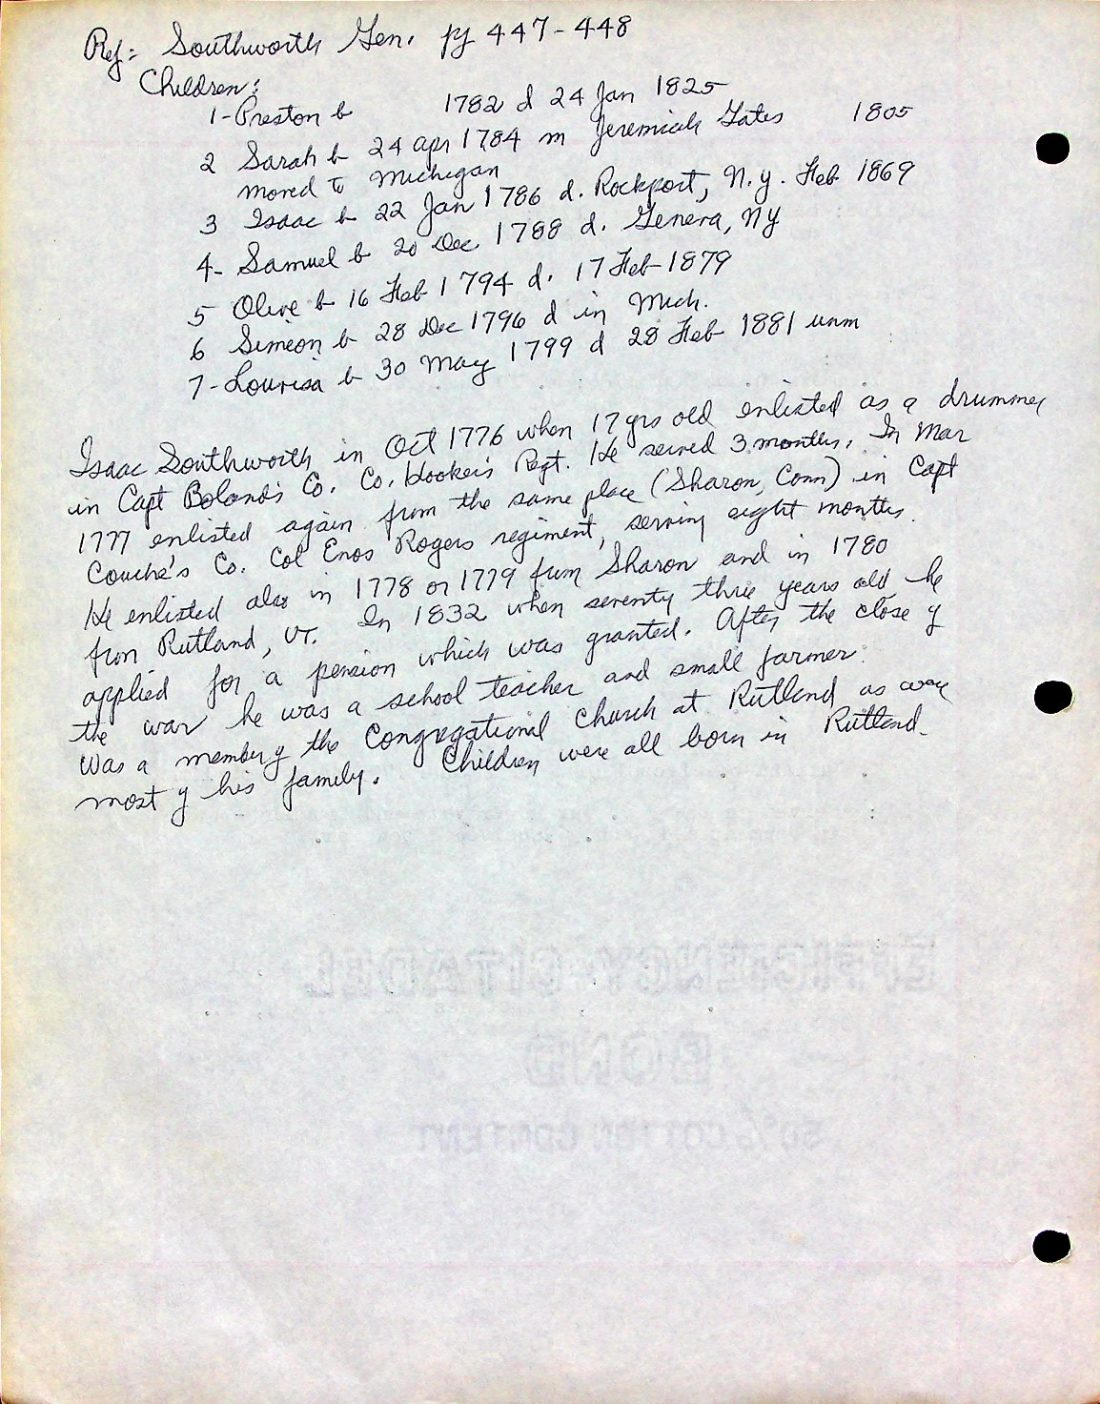 Ref: Southworth Gen. pg 447-448
Children:
1-Preston b 1782 d 24 Jan 1825
2 Sarah b 24 apr 1784 m Jeremiah Gates 1805
moved to Michigan
3 Isaac b 22 Jan 1786 d. Rockport, N.Y. Feb 1869
4- Samuel b 20 Dec 1788 d. Genera, NY
5 Olive b 16 Feb 1794 d. 17 Feb 1879
6 Simeon b 28 Dec 1796 d in Mich.
7-Lourisa b 30 May 1799 d 28 Feb 1881 unm
Isaac Southworth in Oct 1776 when 17 yrs old enlisted as a drummer
in Capt Boland's Co. Co. Hooker's Regt. He served 3 months. In Mar
1777 enlisted again from the same place (Sharon, Conn) in Capt
Couche's Co. Col Enos Rogers regiment, serving eight months.
He enlisted also in 1778 or 1779 from Sharon and in 1780
from Rutland, VT. In 1832 when seventy three years old he
applied for a pension which was granted. After the close of
the war he was a school teacher and small farmer.
Was a member of the Congregational Church at Rutland as were
most of his family. Children were all born in Rutland.
EFFICIENCY CITADEL
BOND
50% COTTON CONTENT